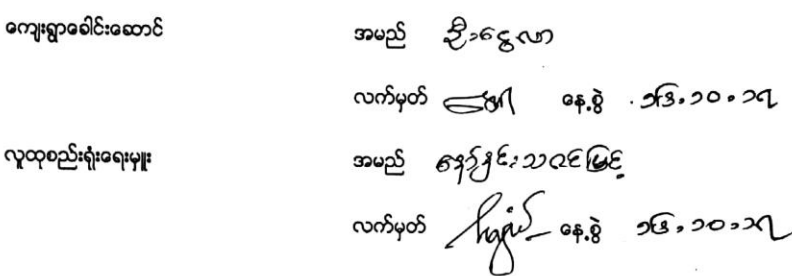 ကျေးရွာခေါင်းဆောင် အမည် ဦးငွေလာ
လက်မှတ် နေ့စွဲ ၁၆.၁၀.၁၇
လူထုစည်းရုံးရေးမှူး အမည် နော်နှင်းသဇင်မြင့်
လက်မှတ် နေ့စွဲ ၁၆.၁၀.၁၇